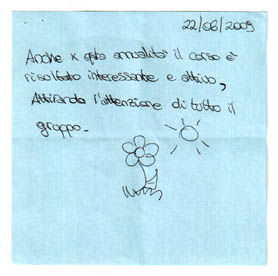 22/06/2009
Anche x qsta annualita' il corso è
risultato interessante e attivo,
Attirando l'attenzione di tutto il
gruppo.